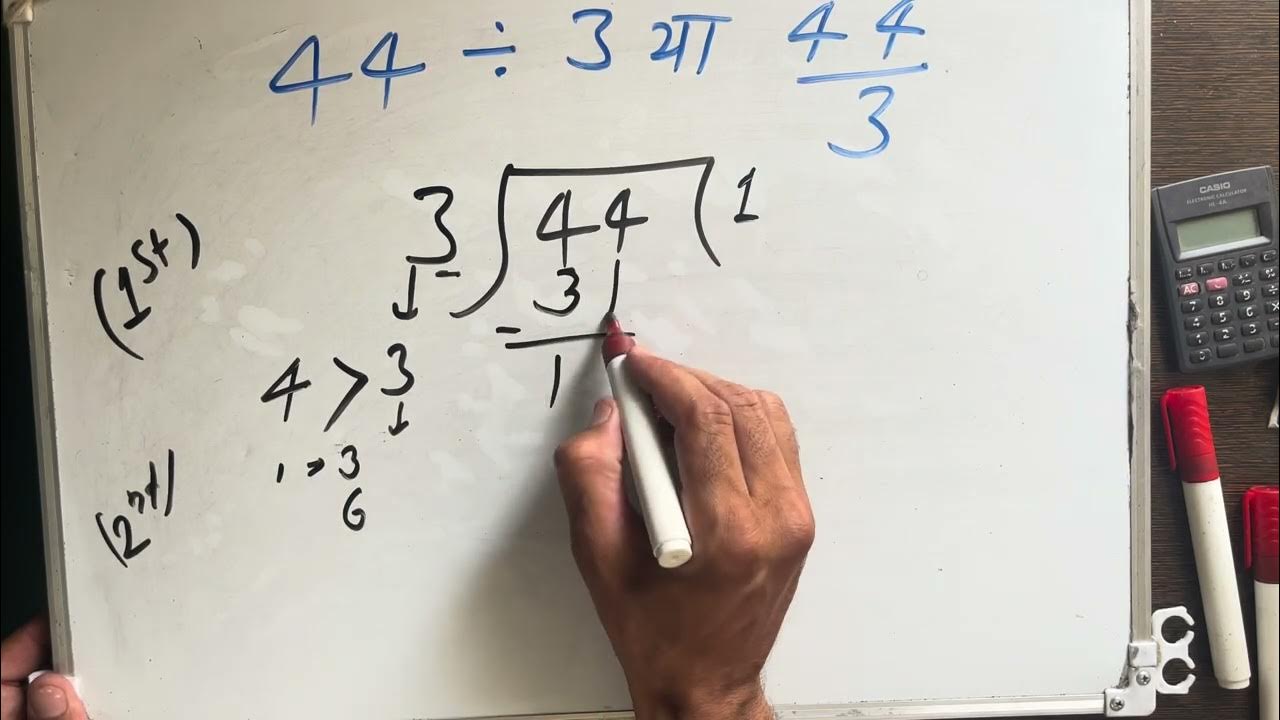 44 ÷ 3 या 44/3
3 ) 44 ( 1
(1st)
- 3
1
4 > 3
(2nt)
1 → 3
6
CASIO
ELECTRONIC CALCULATOR
HL-4A
AC